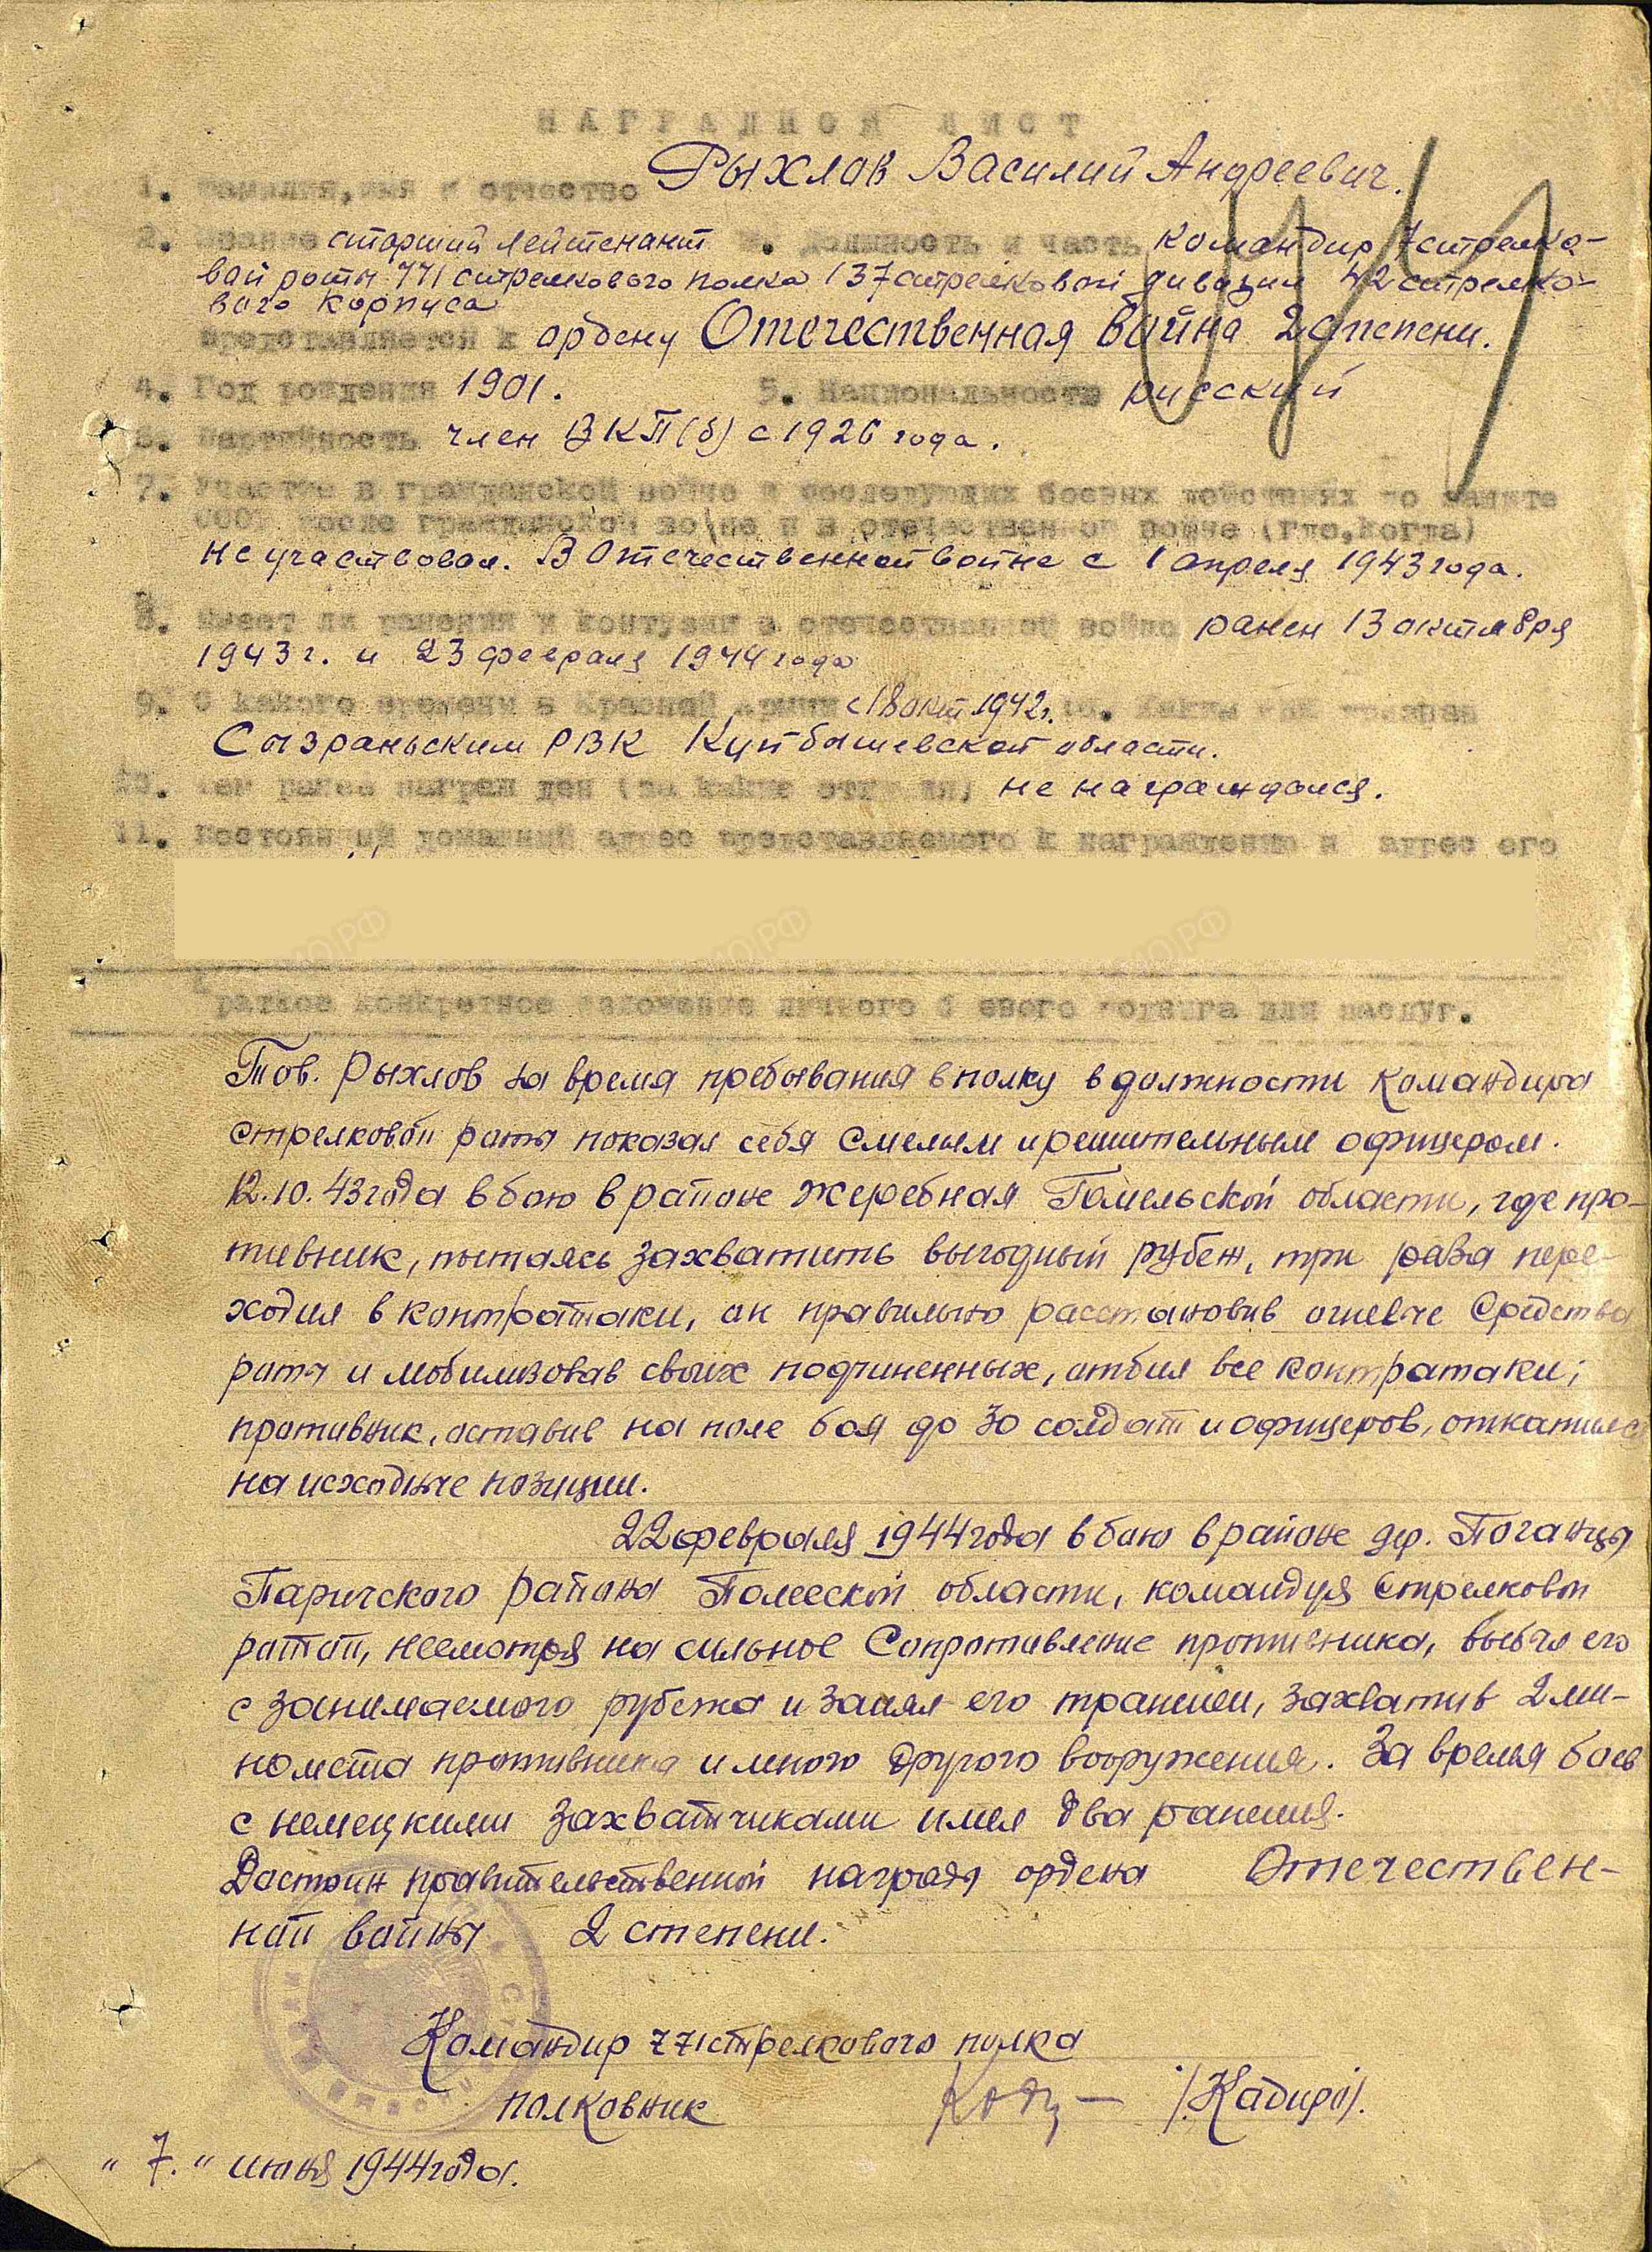 НАГРАДНОЙ ЛИСТ
1. Фамилия, имя и отчество Рыхлов Василий Андреевич.
2. Звание старший лейтенант 3. Должность и часть командир 7 стрелко-
вой роты 771 стрелкового полка 137 стрелковой дивизии 42 стрелко-
вого корпуса
представляется к ордену Отечественная война 2 степени.
4. Год рождения 1901. 5. Национальность русский
6. Партийность член ВКП(б) с 1926 года.
7. Участие в гражданской войне и последующих боевых действиях по защите
СССР после гражданской войне и в отечественной войне (где, когда)
не участвовал. В Отечественной войне с 1 апреля 1943 года.
8. Имеет ли ранения и контузии в отечественной войне ранен 13 октября
1943 г. и 23 февраля 1944 года
9. С какого времени в Красной армии с 18 окт 1942 г. Каким РВК призван
Сызраньским РВК Куйбышевской области.
10. Чем ранее награжден (за какие отличия) не награждался.
11. Постоянный домашний адрес представляемого к награждению и адрес его
Краткое конкретное изложение личного боевого подвига или заслуг.
Тов. Рыхлов за время пребывания в полку в должности командира
стрелковой роты показал себя смелым и решительным офицером.
12.10.43 года в бою в районе Жеребная Гомельской области, где про-
тивник, пытаясь захватить выгодный рубеж, три раза пере-
ходил в контратаки, он правильно расстановив огневые средства
роты и мобилизовав своих подчиненных, отбил все контратаки;
противник, оставив на поле боя до 30 солдат и офицеров, откатился
на исходные позиции.
22 февраля 1944 года в бою в районе дер. Поганцы
Паричского района Полесской области, командуя стрелковой
ротой, несмотря на сильное сопротивление противника, выбил его
с занимаемого рубежа и занял его траншеи, захватив 2 ми-
номета противника и много другого вооружения. За время боев
с немецкими захватчиками имел два ранения.
Достоин правительственной награды ордена Отечествен-
ной войны 2 степени.
Командир 771 стрелкового полка
полковник /Кадиро/.
"7." июня 1944 года.